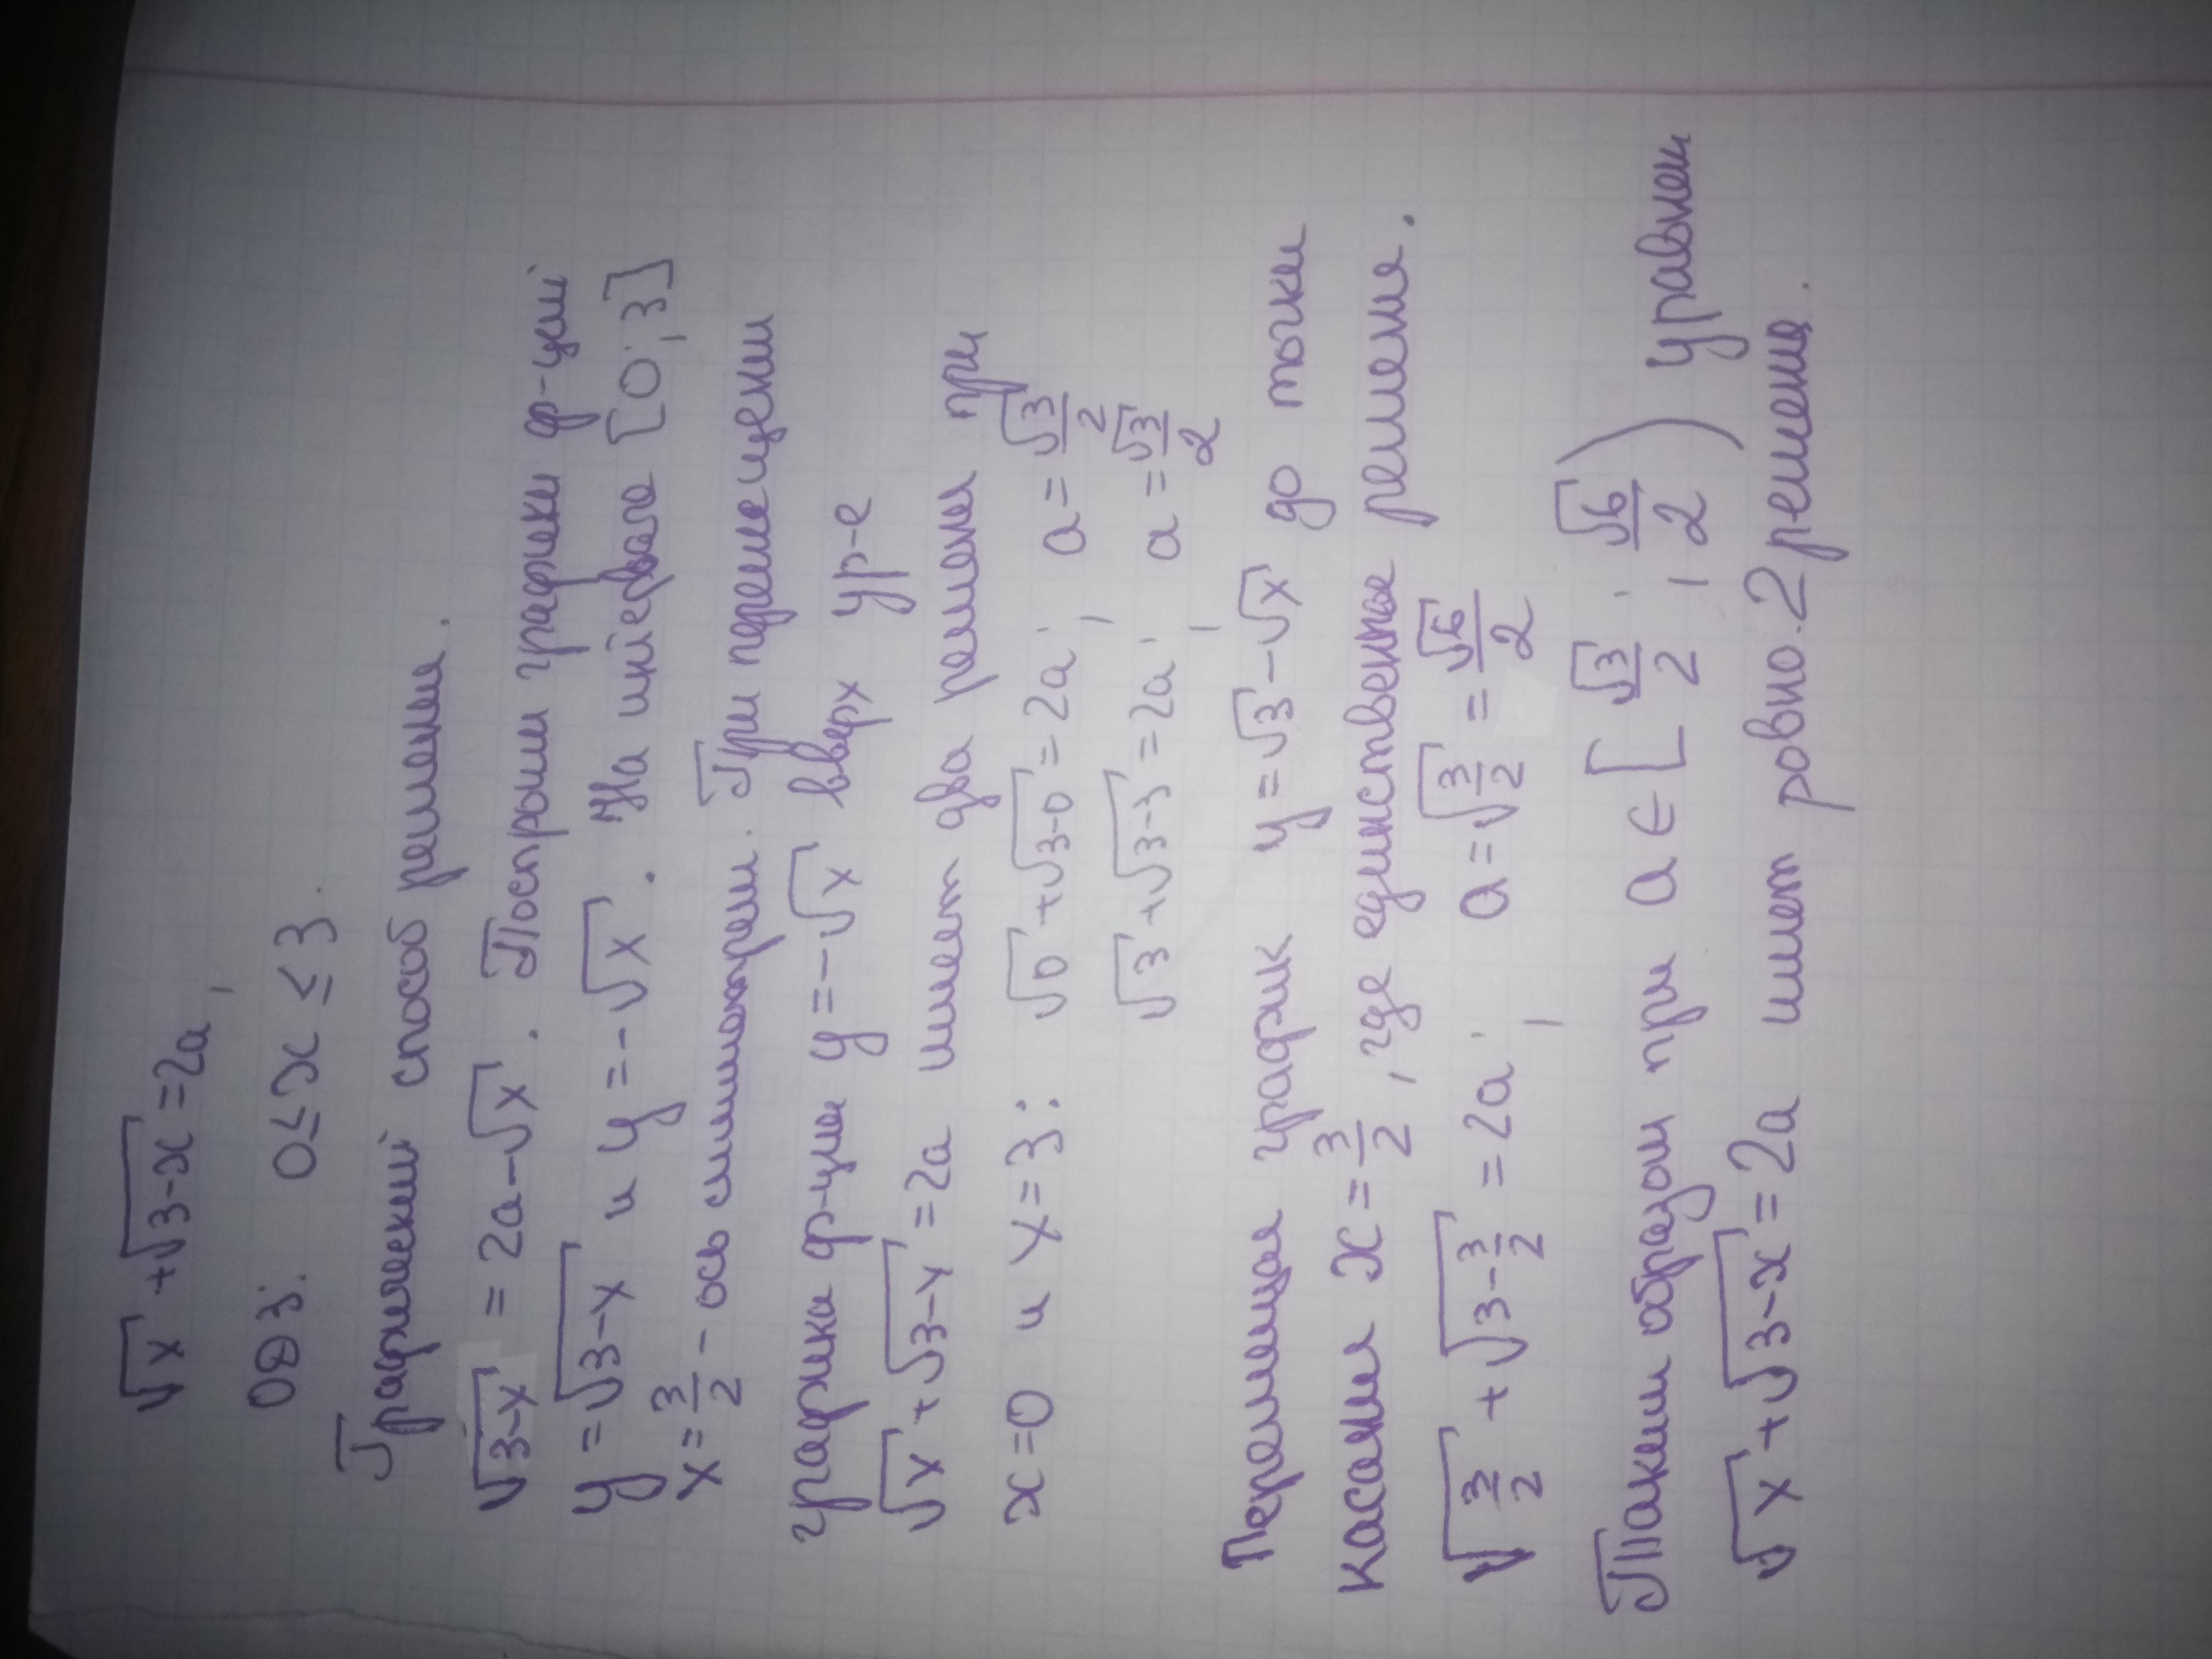 √x + √3-x = 2a,
ОДЗ: 0 ≤ x ≤ 3.
Графический способ решения.
√3-x = 2a - √x. Построим графики ф-ций
y = √3-x и y = -√x. На интервале [0; 3]
x = 3/2 - ось симметрии. При перемещении
графика ф-ции y = -√x вверх ур-е
√x + √3-x = 2a имеет два решения при
x = 0 и x = 3: √0 + √3-0 = 2a; a = √3/2
√3 + √3-3 = 2a; a = √3/2
Перемещая график y = √3 - √x до точки
касания x = 3/2, где единственное решение.
√3/2 + √3-3/2 = 2a; a = √3/2 = √6/2
Таким образом при a ∈ [√3/2; √6/2) уравнен
√x + √3-x = 2a имеет ровно 2 решения.